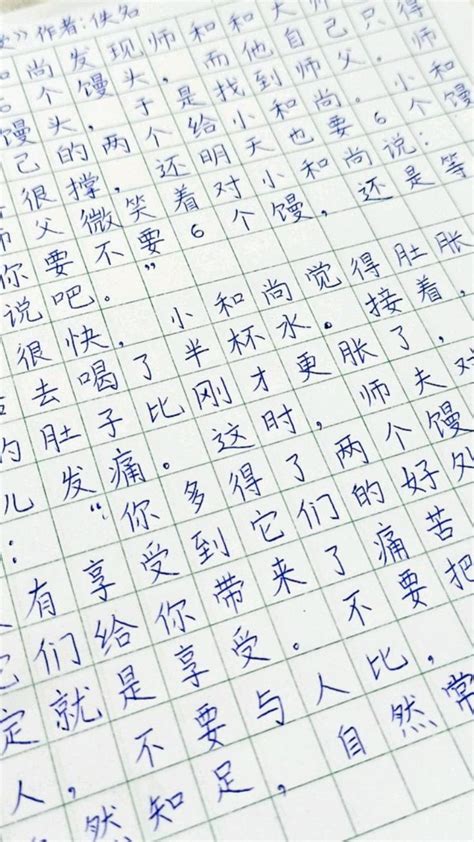 》作者:佚名
尚发现师和和大师
个馒头，而他自己只得
馒头，于是找到师父。师
己的两个给小和尚。小和
很撑，还明天也要6个馒
父微笑着对小和尚说：
你要不要6个馒，还是等
说吧。”
很快，小和尚觉得肚胀
去喝了半杯水。接着，
的肚子比刚才更胀了，
儿发痛。这时，师夫对
：“你多得了两个馒
有享受到它们的好处
它们给你带来了痛苦
定就是享受。不要把
人，不要与人比，
然知足，自然常